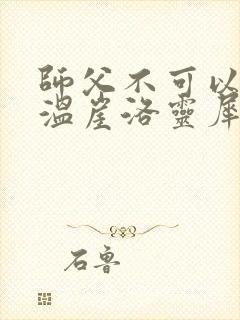 師父不可以
溫崖洛靈犀
石魯